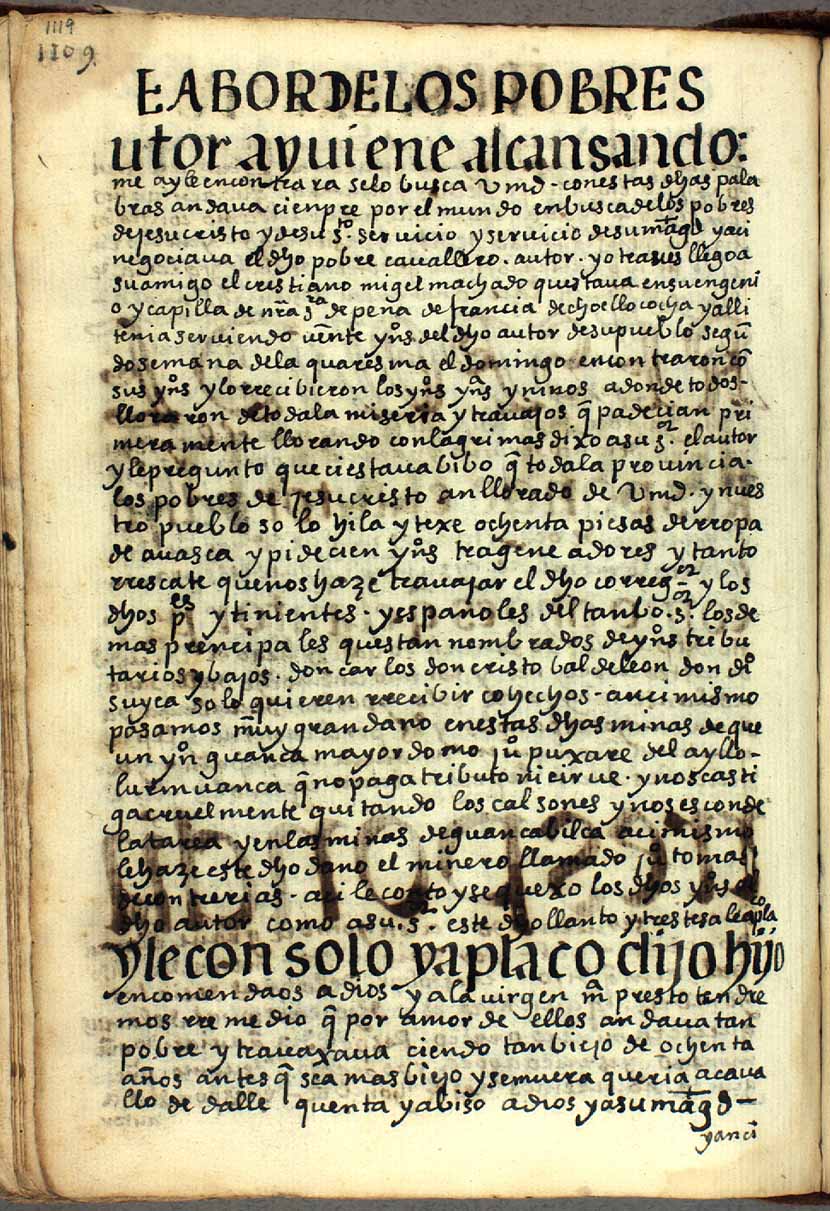 1119
1109
EABORDELOS POBRES
utor ayuiene alcansando:
me ayleencontrara selo busca Vmd - conestas dhas pala
bras andava cienpre por el mundo enbuscadelos pobres
dejesucristo y desu sto. servicio y servicio desumagd yaci
negociava el dho pobre cavallero. autor. yotraves llegoa
suamigo el crestiano migel machado questava ensuengeni
o y capilla de nra sra de pena de francia de choclloccocha yalli
tenia serviendo uente yns del dho autor desupueblo segu
do semana dela quaresma el domingo encontraron co
sus yns ylo rrecibieron los yns yns yninos adonde todos-
lloraron de toda la miseria y travajos q padecian pri
meramente llorando con lagrimas dixo asu sor. el autor
y le pregunto que ci estava bibo q toda la provincia.
los pobres de jesucristo an llorado de Vmd. y nues
tro pueblo solo hila y texe ochenta piesas de rropa
de auasca y pide cien yns trageneadores y tanto
rrescate que nos haze travajar el dho corregor y los
dhos pes y tinientes. y españoles del tanbo. sor. los de
mas prencipales questan nombrados de yns tribu
tarios y bajos. don carlos don cristobal de leon don di
suyca solo quieren rrecibir cohechos - aci mismo
pasamos muy gran dano en estas dhas minas de que
un yn guanca mayordomo ju puxare del ayllo-
lurinuanca q no paga tributo ni cirue. y nos casti
ga cruelmente quitando los calsones y nos esconde
la tarea y en las minas de guancabilca aci mismo
le haze este dho dano el minero llamado ju tomas
de contrerias - aci le conto y se quexo los dhos yns al
dho autor como a su sor. este dho llanto y trestesa le apla
co
y le con solo yaplaco dijo hijo
encomendaos a dios y a la virgen ma presto tendre
mos rremedio q por amor de ellos andava tan
pobre y travaxava ciendo tan biejo de ochenta
años antes q sea mas biejo y se muera queria acava
llo de dalle quenta y abiso a dios y a su magd -
yanci